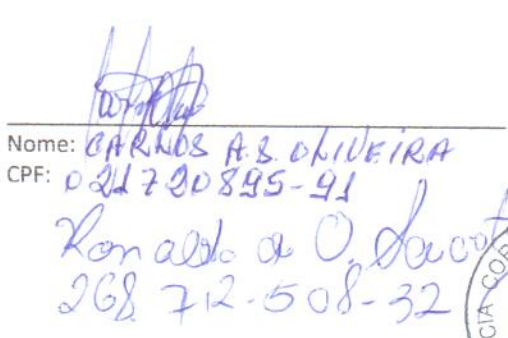 Nome: CARLOS A.S. OLIVEIRA
CPF: 021720895-91
Ronaldo de O.
268.712-508-32
CIA COR